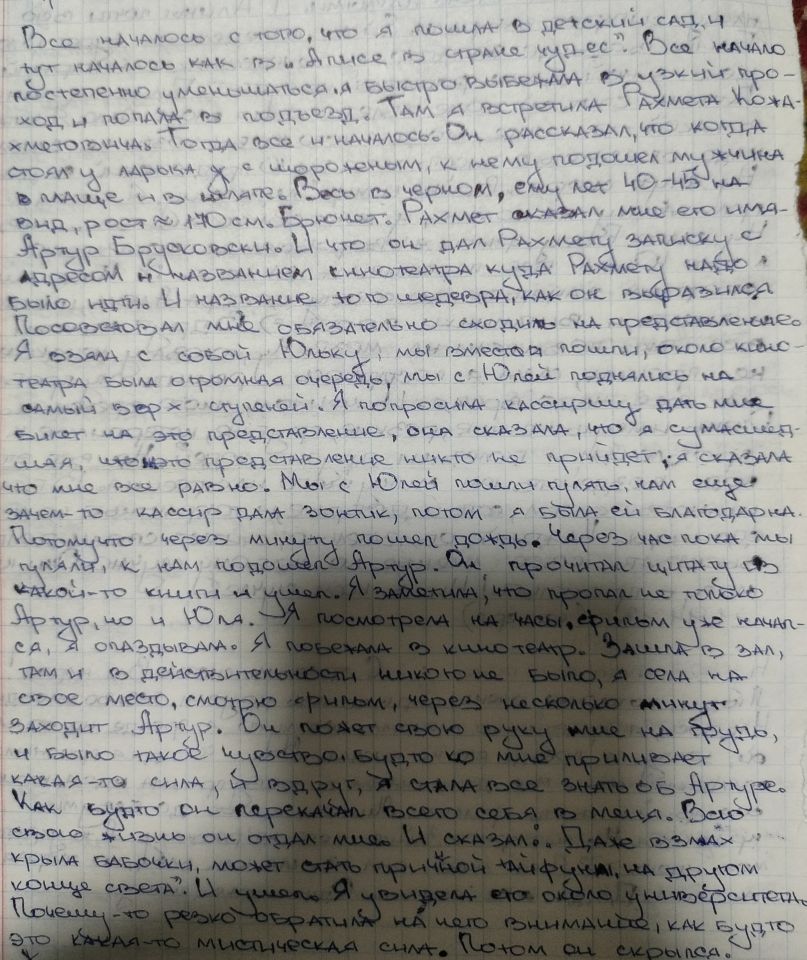 Все началось с того, что я пошла в детский сад, и
тут началось как в „Алисе в стране чудес". Все начало
постепенно уменьшаться. я быстро выбежала в узкий про-
ход и попала в подъезд. Там я встретила Рахмета Кожа-
хметовича. Тогда все и началось. Он рассказал, что когда
стоял у ларька с мороженым, к нему подошел мужчина
в плаще и в шляпе. Весь в черном, ему лет 40-45 на
вид, рост ≈ 170 см. Брюнет. Рахмет сказал мне его имя-
Артур Брусковски. И что он дал Рахмету записку с
адресом и названием кинотеатра куда Рахмету надо
было идти. И название того шедевра, как он выразился
Посоветовал мне обязательно сходить на представление.
Я взяла с собой Юльку, мы вместе пошли, около кино-
театра была огромная очередь, мы с Юлей поднялись на
самый верх ступеней. Я попросила кассиршу дать мне
билет на это представление, она сказала, что я сумасшед-
шая, что на это представление никто не прийдет, я сказала
что мне все равно. Мы с Юлей пошли гулять, нам еще
зачем-то кассир дала зонтик, потом я была ей благодарна.
Потомучто через минуту пошел дождь. Через час пока мы
гуляли, к нам подошел Артур. Он прочитал цитату из
какой-то книги и ушел. Я заметила, что пропал не только
Артур, но и Юля. Я посмотрела на часы, фильм уже начал-
ся, я опаздывала. Я побежала в кинотеатр. Зашла в зал,
там и в действительности никого не было, я села на
свое место, смотрю фильм, через несколько минут
заходит Артур. Он ложет свою руку мне на грудь,
и было такое чувство, будто ко мне приливает
какая-то сила, и вдруг, я стала все знать об Артуре.
Как будто он перекачал всего себя в меня. Всю
свою жизнь он отдал мне. И сказал: „Даже взмах
крыла бабочки, может стать причиной тайфуна, на другом
конце света". И ушел. Я увидела его около университета.
Почему-то резко обратила на него внимание, как будто
это какая-то мистическая сила. Потом он скрылся.